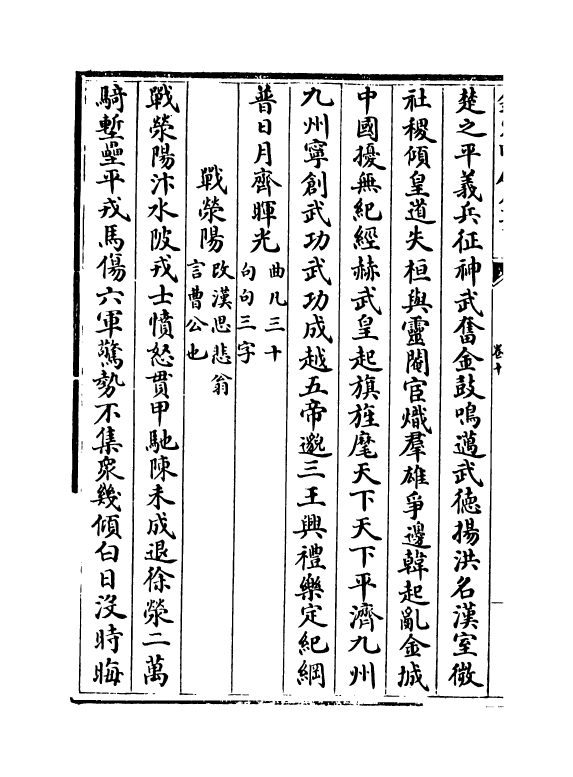 楚之平義兵征神武奮金鼓鳴邁武徳揚洪名漢室微
社稷傾皇道失桓與靈閹官熾羣雄爭邊韓起亂金城
中國擾無紀經赫武皇起旗旌麾天下天下平濟九州
九州寧創武功武功成越五帝邈三王興禮樂定紀綱
普日月齊暉光
曲凡三十
句句三字
戰滎陽
改漢思悲翁
言曹公也
戰滎陽汴水陂戎士憤怒貫甲馳陳未成退徐滎二萬
騎塹壘平戎馬傷六軍驚勢不集衆幾傾白日没時晦
卷十